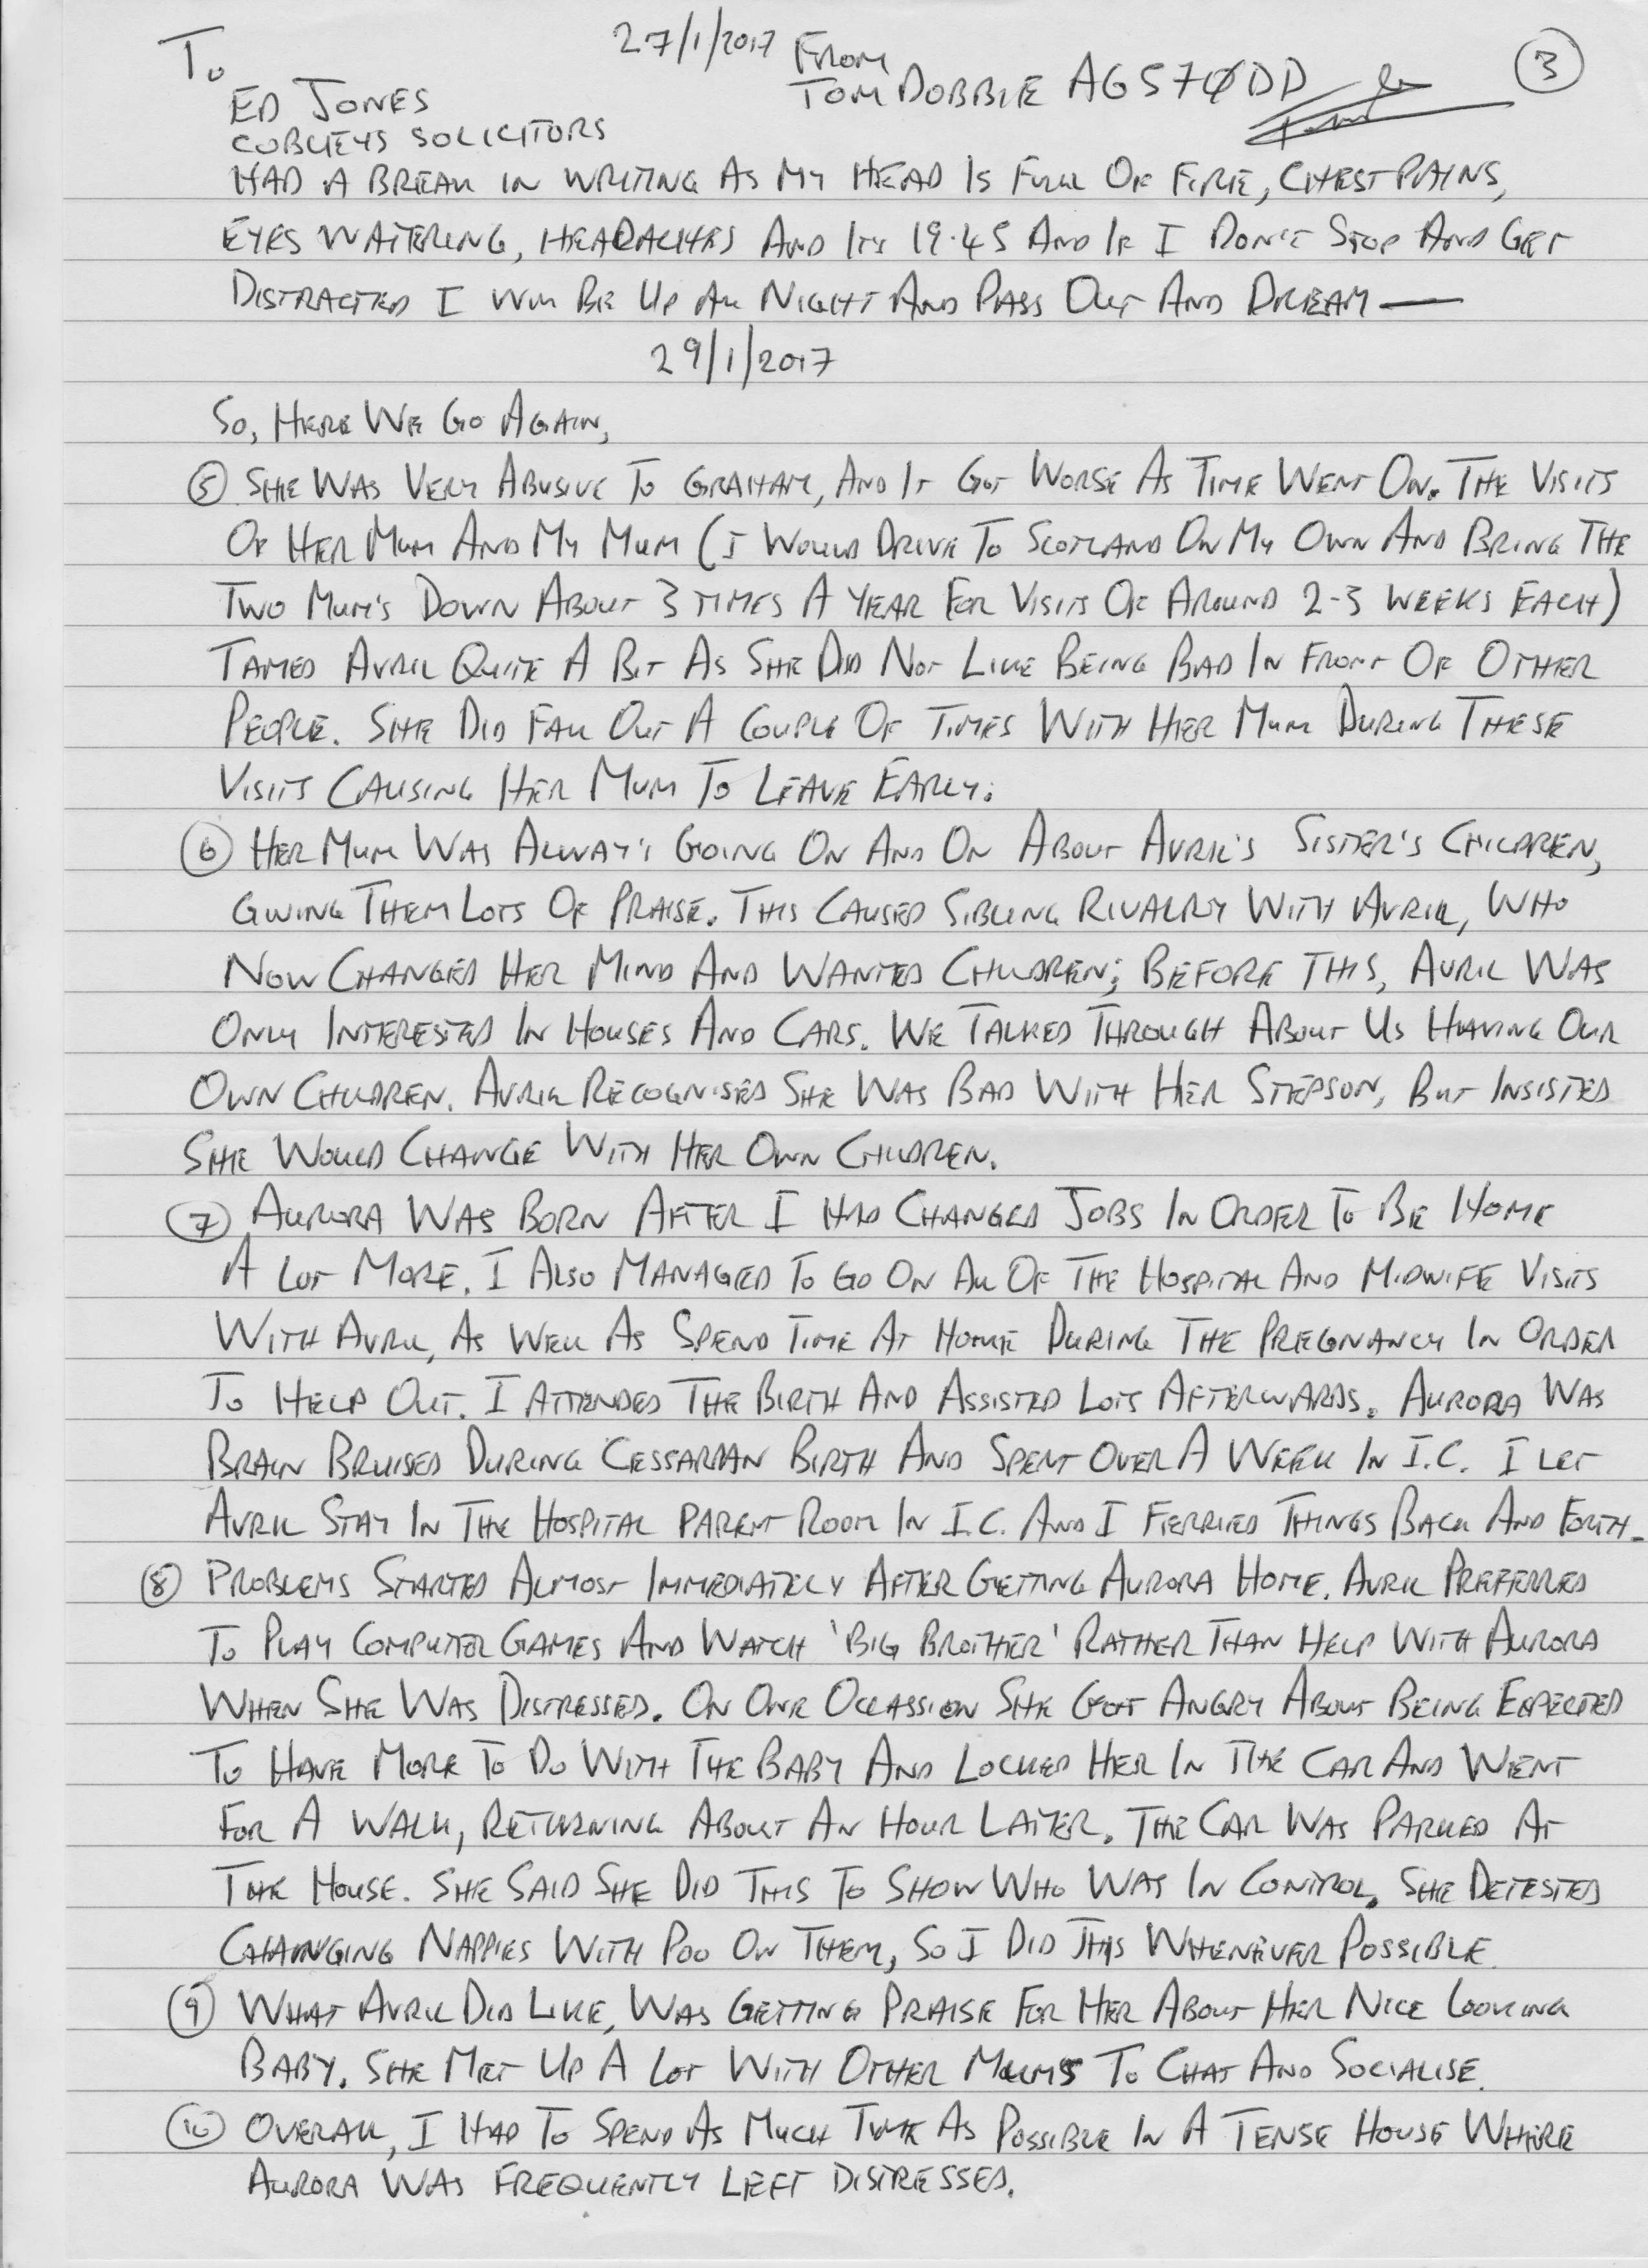 To 27/1/2017 From ③
ED JONES TOM DOBBIE A6570DD
COBLEYS SOLICITORS
HAD A BREAK IN WRITING AS MY HEAD IS FULL OF FIRE, CHEST PAINS,
EYES WATERING, HEADACHES AND ITS 19.45 AND IF I DON'T STOP AND GET
DISTRACTED I WILL BE UP ALL NIGHT AND PASS OUT AND DREAM —
29/1/2017
SO, HERE WE GO AGAIN,
⑤ SHE WAS VERY ABUSIVE TO GRAHAM, AND IT GOT WORSE AS TIME WENT ON. THE VISITS
OF HER MUM AND MY MUM (I WOULD DRIVE TO SCOTLAND ON MY OWN AND BRING THE
TWO MUM'S DOWN ABOUT 3 TIMES A YEAR FOR VISITS OF AROUND 2-3 WEEKS EACH)
TAMED AVRIL QUITE A BIT AS SHE DID NOT LIKE BEING BAD IN FRONT OF OTHER
PEOPLE. SHE DID FALL OUT A COUPLE OF TIMES WITH HER MUM DURING THESE
VISITS CAUSING HER MUM TO LEAVE EARLY.
⑥ HER MUM WAS ALWAY'S GOING ON AND ON ABOUT AVRIL'S SISTER'S CHILDREN,
GIVING THEM LOTS OF PRAISE. THIS CAUSED SIBLING RIVALRY WITH AVRIL, WHO
NOW CHANGED HER MIND AND WANTED CHILDREN; BEFORE THIS, AVRIL WAS
ONLY INTERESTED IN HOUSES AND CARS. WE TALKED THROUGH ABOUT US HAVING OUR
OWN CHILDREN. AVRIL RECOGNISED SHE WAS BAD WITH HER STEPSON, BUT INSISTED
SHE WOULD CHANGE WITH HER OWN CHILDREN.
⑦ AURORA WAS BORN AFTER I HAD CHANGED JOBS IN ORDER TO BE HOME
A LOT MORE. I ALSO MANAGED TO GO ON ALL OF THE HOSPITAL AND MIDWIFE VISITS
WITH AVRIL, AS WELL AS SPEND TIME AT HOME DURING THE PREGNANCY IN ORDER
TO HELP OUT. I ATTENDED THE BIRTH AND ASSISTED LOTS AFTERWARDS. AURORA WAS
BRAIN BRUISED DURING CESSARIAN BIRTH AND SPENT OVER A WEEK IN I.C. I LET
AVRIL STAY IN THE HOSPITAL PARENT ROOM IN I.C. AND I FERRIED THINGS BACK AND FORTH.
⑧ PROBLEMS STARTED ALMOST IMMEDIATELY AFTER GETTING AURORA HOME. AVRIL PREFERRED
TO PLAY COMPUTER GAMES AND WATCH 'BIG BROTHER' RATHER THAN HELP WITH AURORA
WHEN SHE WAS DISTRESSED. ON ONE OCCASSION SHE GOT ANGRY ABOUT BEING EXPECTED
TO HAVE MORE TO DO WITH THE BABY AND LOCKED HER IN THE CAR AND WENT
FOR A WALK, RETURNING ABOUT AN HOUR LATER. THE CAR WAS PARKED AT
THE HOUSE. SHE SAID SHE DID THIS TO SHOW WHO WAS IN CONTROL. SHE DETESTED
CHANGING NAPPIES WITH POO ON THEM, SO I DID THIS WHENEVER POSSIBLE.
⑨ WHAT AVRIL DID LIKE, WAS GETTING PRAISE FOR HER ABOUT HER NICE LOOKING
BABY. SHE MET UP A LOT WITH OTHER MUMS TO CHAT AND SOCIALISE.
⑩ OVERALL, I HAD TO SPEND AS MUCH TIME AS POSSIBLE IN A TENSE HOUSE WHERE
AURORA WAS FREQUENTLY LEFT DISTRESSED.